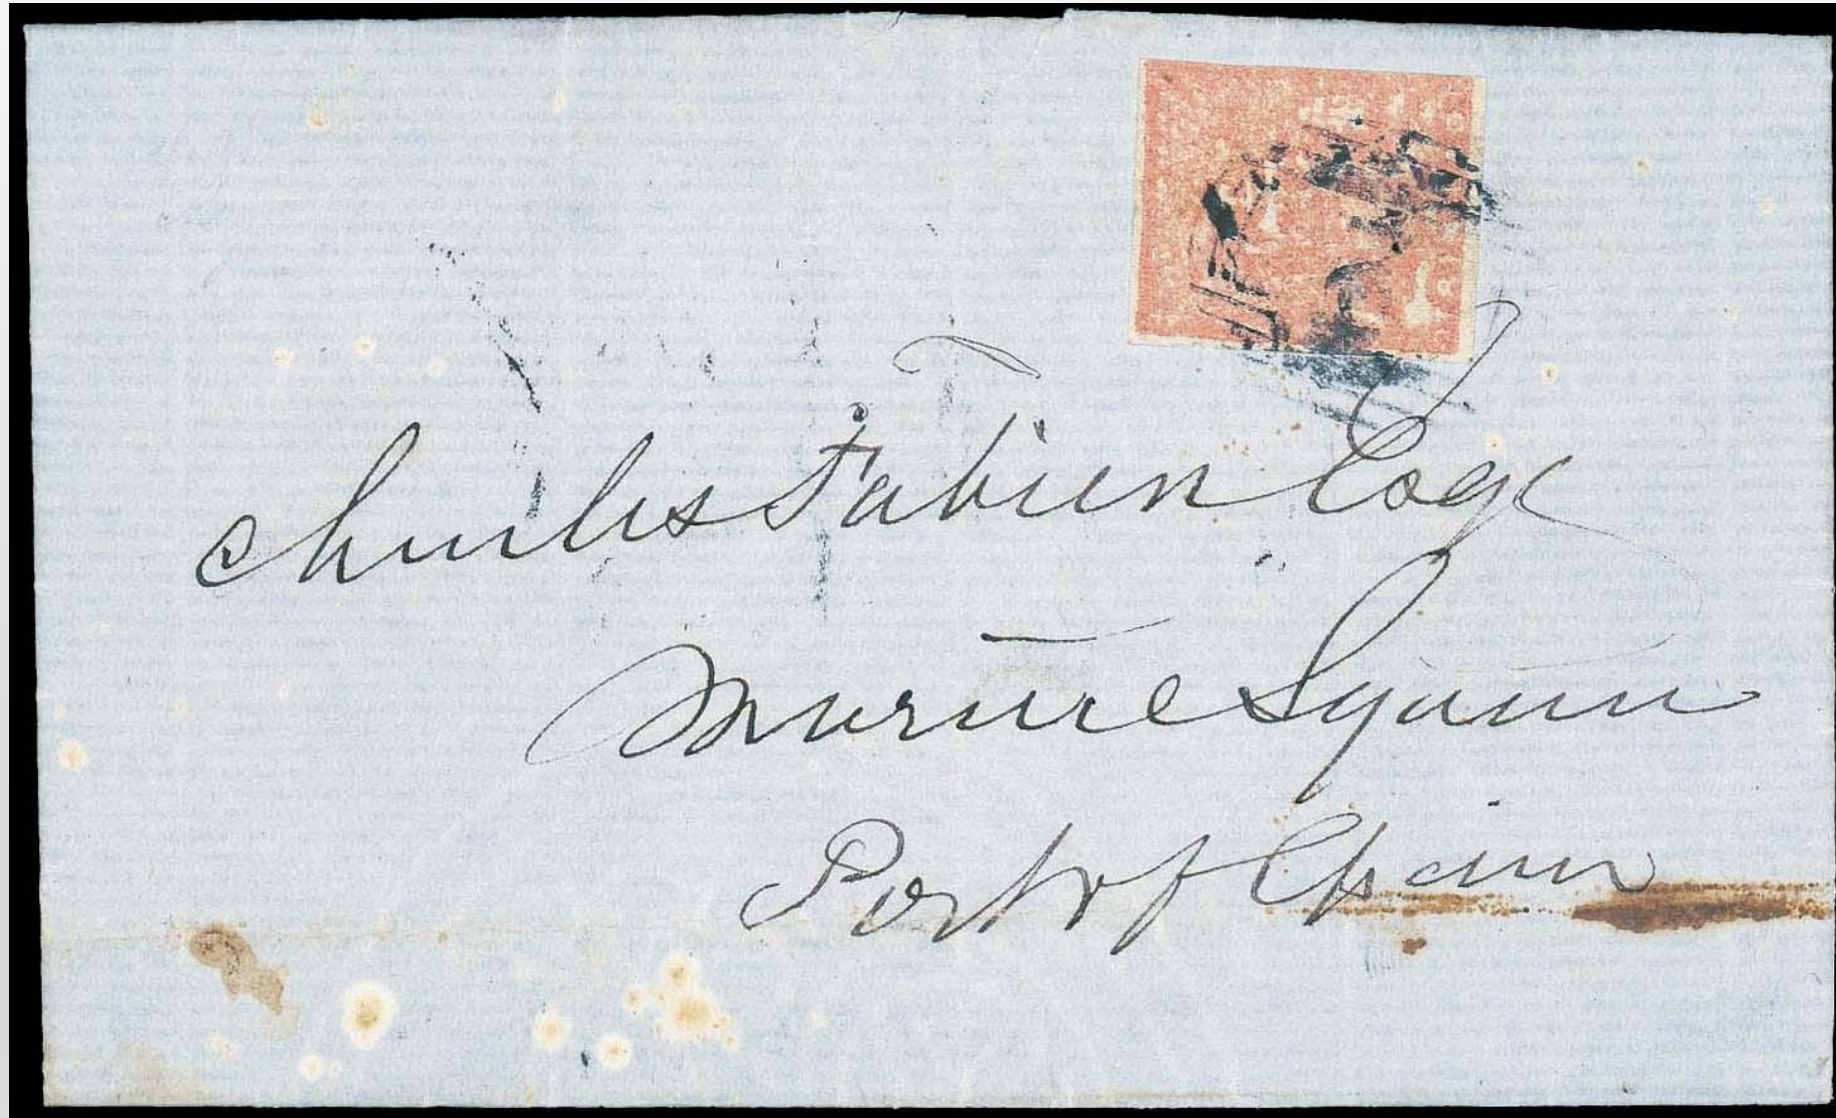 Charles Fabien Esqr
Marine Square
Port of Spain